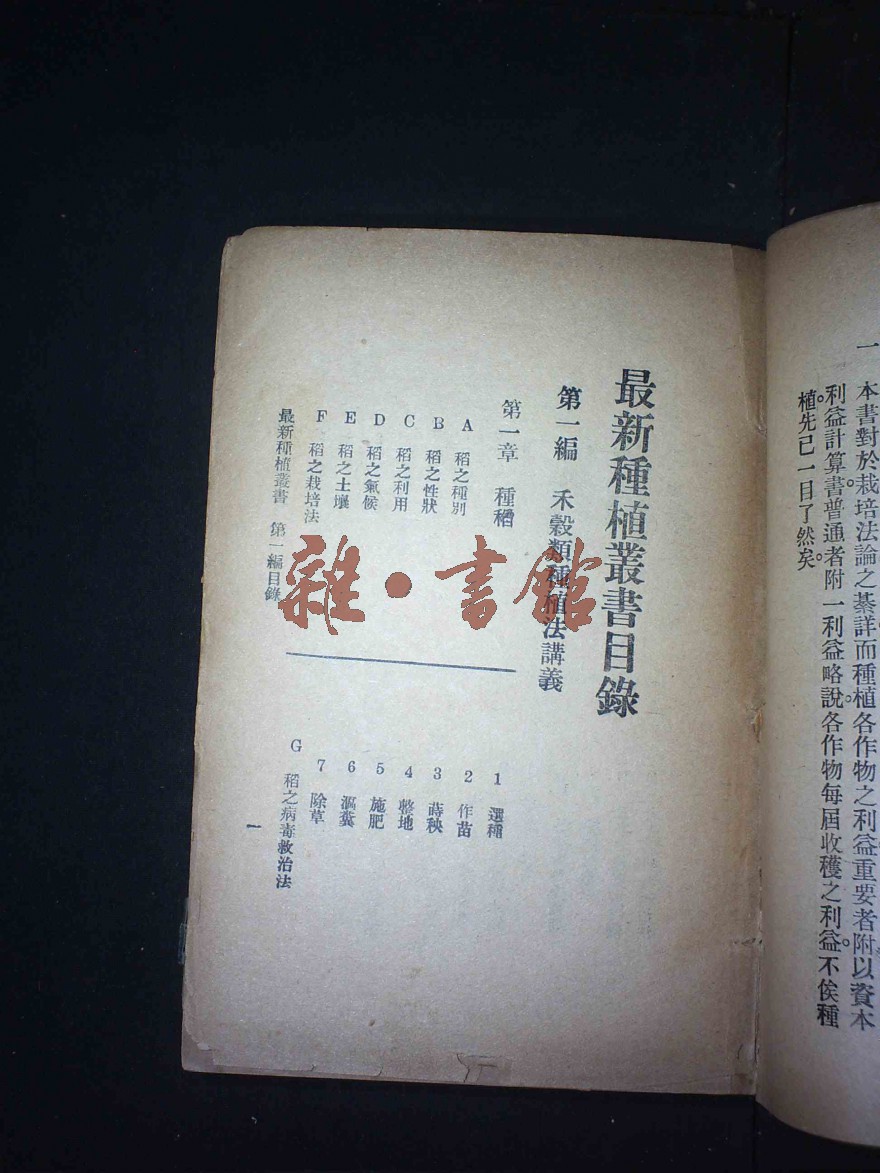 一 本書對於栽培法論之綦詳而種植各作物之利益重要者附以資本
利益計算書普通者附一利益略說各作物每屆收穫之利益不俟種
植先已一目了然矣。
最新種植叢書目錄
第一編 禾穀類種植法講義
第一章 種稻
A 稻之種別
B 稻之性狀
C 稻之利用
D 稻之氣候
E 稻之土壤
F 稻之栽培法
1 選種
2 作苗
3 蒔秧
4 整地
5 施肥
6 漚糞
7 除草
G 稻之病毒救治法
最新種植叢書 第一編目錄
一
雜·書館